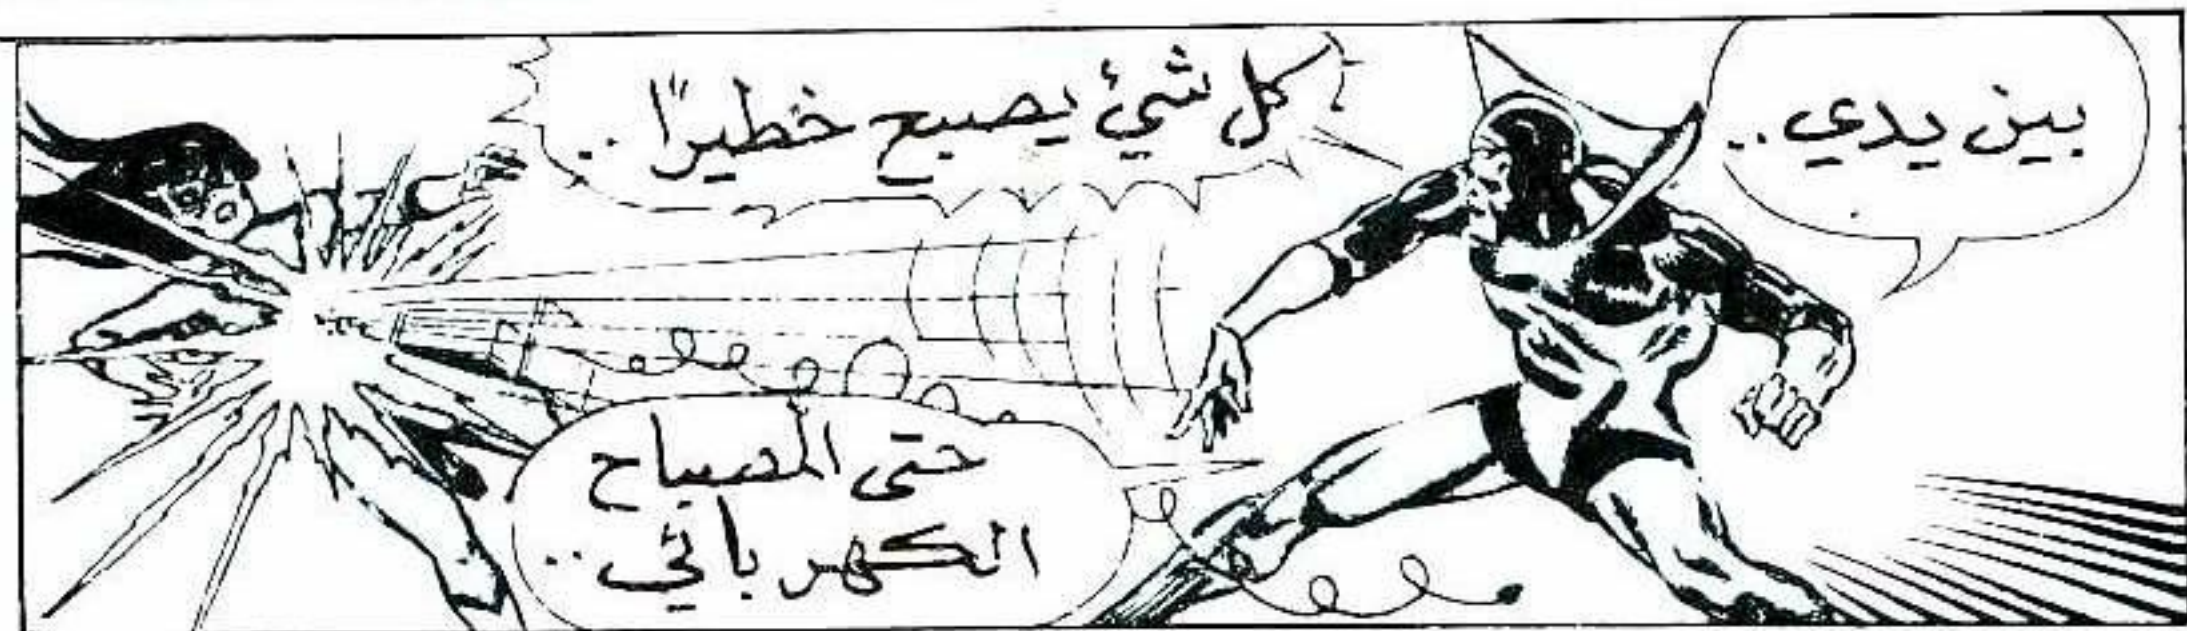 بين يدي..
كل شئ يصبح خطيرًا..
حتى المصباح
الكهربائي..